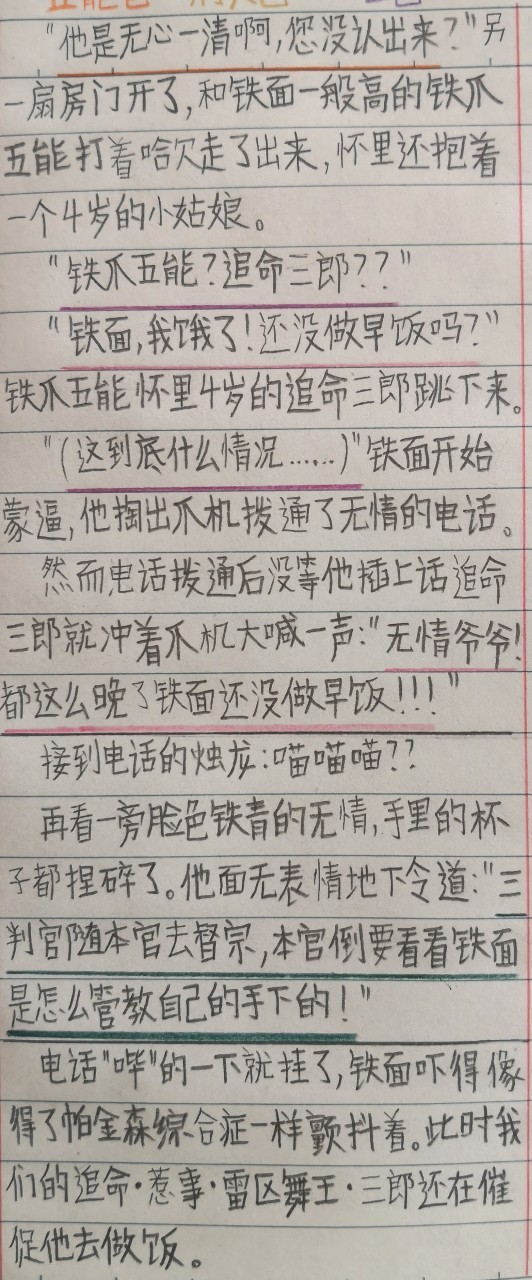 “他是无心一清啊,您没认出来?”另
一扇房门开了,和铁面一般高的铁爪
五能打着哈欠走了出来,怀里还抱着
一个4岁的小姑娘。
“铁爪五能?追命三郎??”
“铁面,我饿了!还没做早饭吗?”
铁爪五能怀里4岁的追命三郎跳下来。
“(这到底什么情况……)”铁面开始
蒙逼,他掏出爪机拨通了无情的电话。
然而电话拨通后没等他插上话追命
三郎就冲着爪机大喊一声:“无情爷爷!
都这么晚了铁面还没做早饭!!!”
接到电话的烛龙:喵喵喵??
再看一旁脸色铁青的无情,手里的杯
子都捏碎了。他面无表情地下令道:“三
判官随本官去督宗,本官倒要看看铁面
是怎么管教自己的手下的!”
电话“哔”的一下就挂了,铁面吓得像
得了帕金森综合症一样颤抖着。此时我
们的追命·惹事·雷区舞王·三郎还在催
促他去做饭。